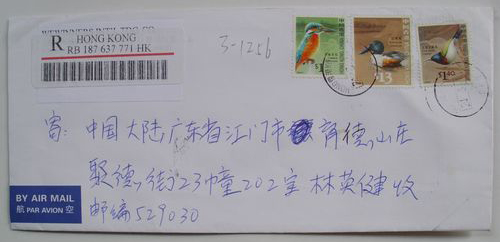 R HONG KONG
RB 187 637 771 HK
3-1256
$1
$13
$1.40
寄: 中国大陆,广东省江门市 育德,山庄
聚德,街23幢202室 林英健 收
邮编 529030
BY AIR MAIL
航 PAR AVION 空